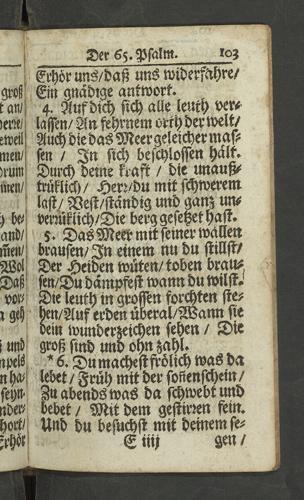 Der 65. Psalm. 103
Erhör uns/daß uns widerfahre/
Ein gnädige antwort.
4. Auf dich sich alle leuth ver-
lassen/An fehrnem orth der welt/
Auch die das Meer geleicher mas-
sen / In sich beschlossen hält.
Durch deine kraft / die unauß-
trüklich/ Herr/du mit schwerem
last/ Vest/ständig und ganz un-
verrüklich/Die berg gesetzet hast.
5. Das Meer mit seiner wällen
brausen/In einem nu du stillst/
Der Heiden wüten/toben brau-
sen/Du dämpfest wann du wilst.
Die leuth in grossen forchten ste-
hen/Auf erden überal/Wann sie
dein wunderzeichen sehen / Die
groß sind und ohn zahl.
*6. Du machest frölich was da
lebet/ Früh mit der soñenschein/
Zu abends was da schwebt und
bebet / Mit dem gestirnen fein.
Und du besuchst mit deinem se-
E iiij gen/